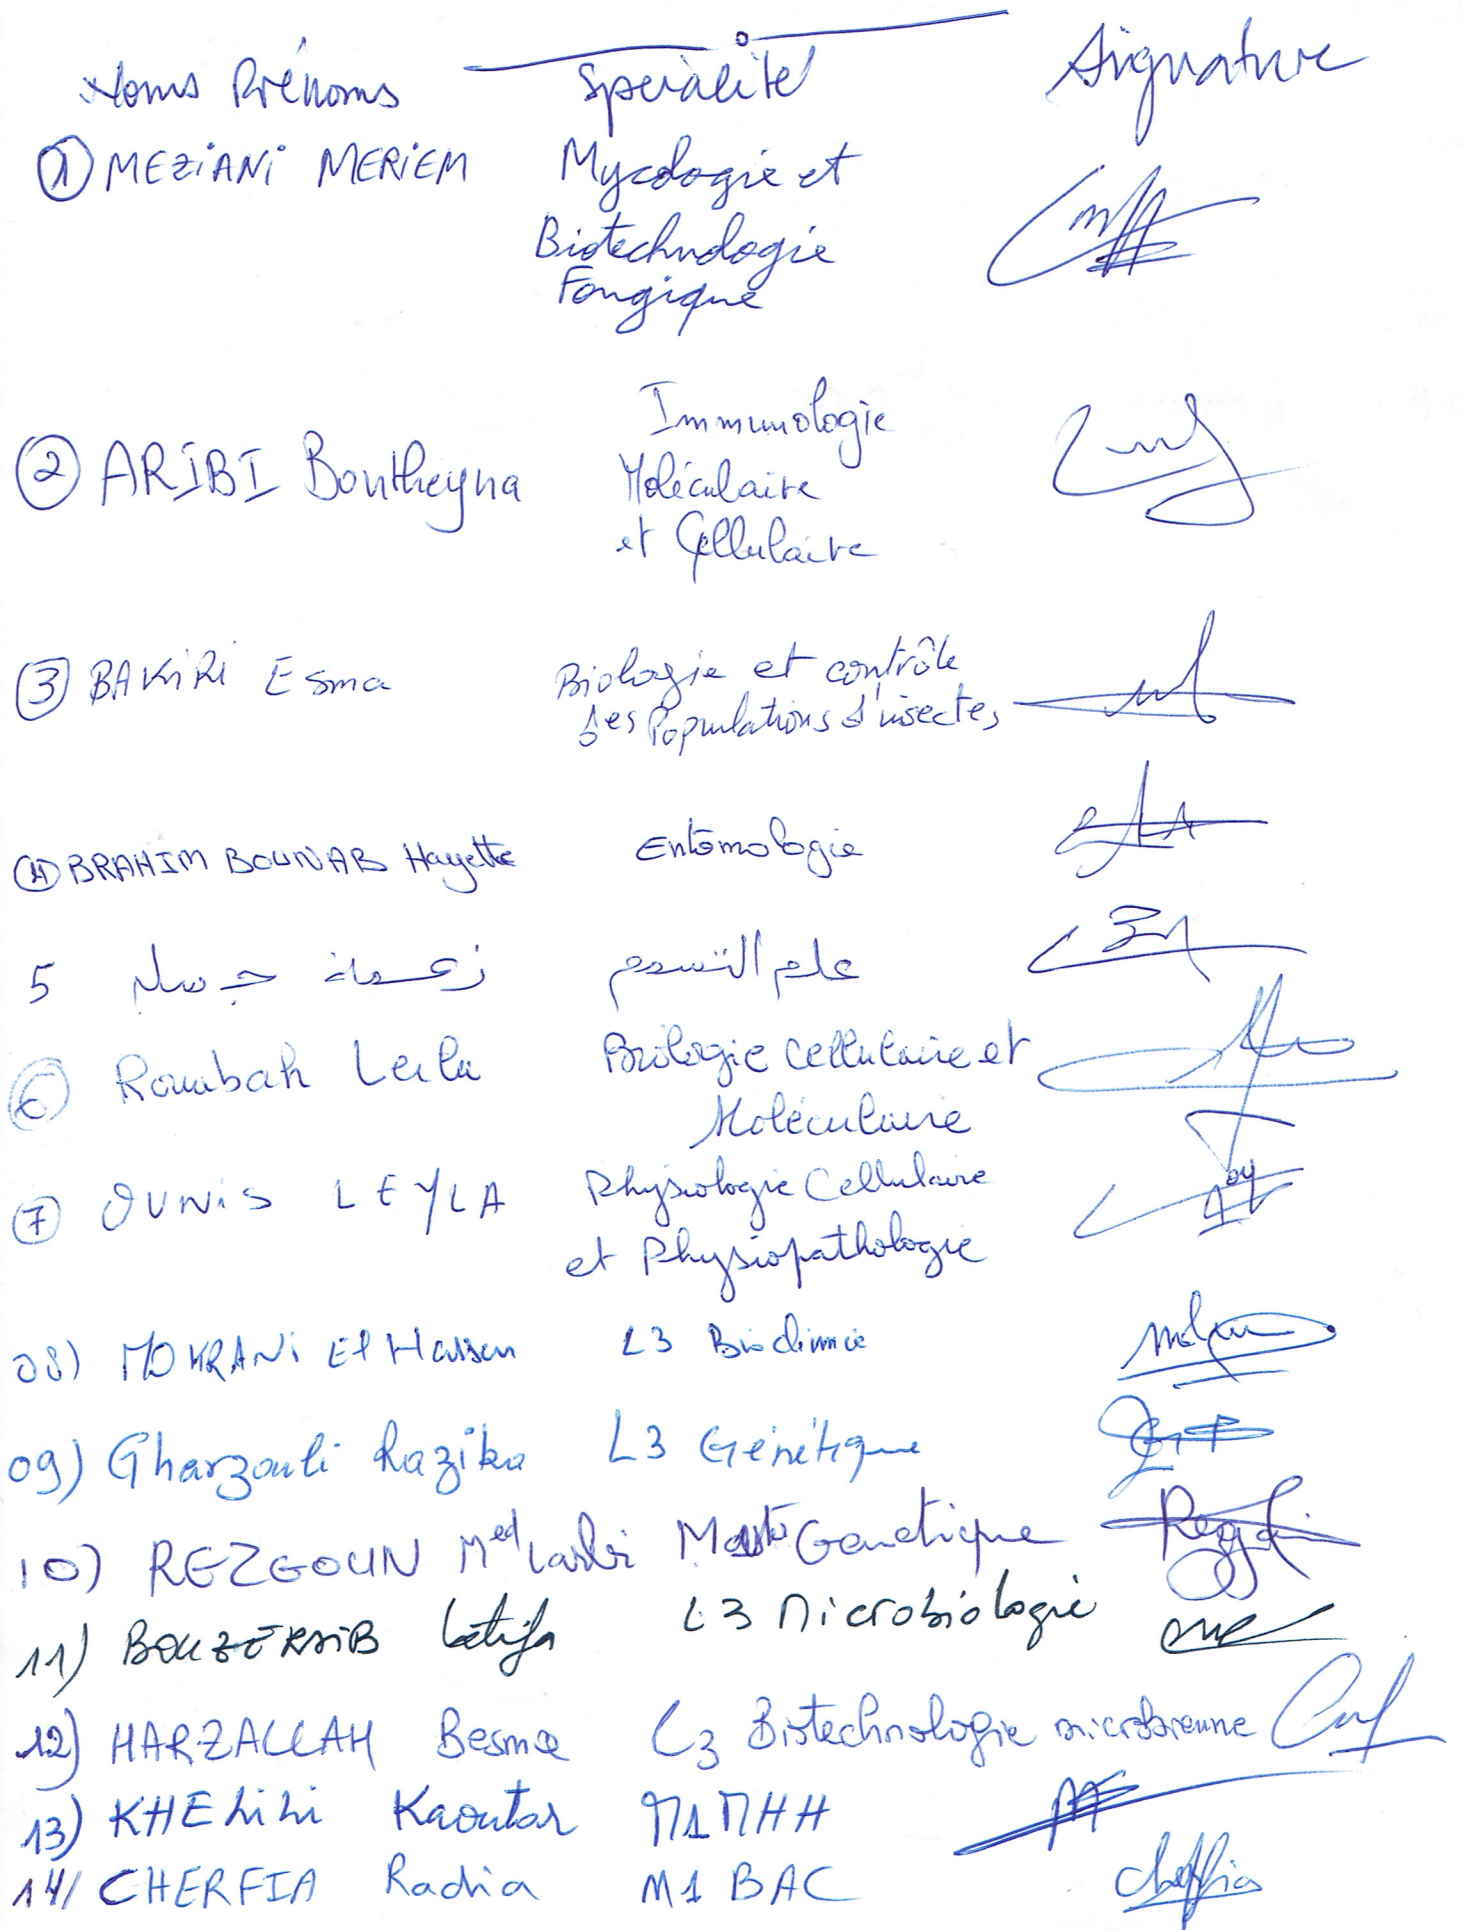 Noms Prénoms Spécialité Signature
① MEZiANi MERIEM Mycologie et
Biotechnologie
Fongique
Immunologie
② ARIBI Bontheyna Moléculaire
et Cellulaire
③ BAKiRi Esma Biologie et contrôle
des Populations d'insectes
④ BRAHIM BOUNAB Hayette Entomologie
5 علم التسمم
⑥ Roubah Leila Biologie Cellulaire et
Moléculaire
⑦ OUNiS LEYLA Physiologie Cellulaire
et Physiopathologie
08) MOKRANi El Hassen L3 Biochimie
09) Gharzouli Razika L3 Génétique
10) REZGOUN Med Larbi Génétique
11) Latifa L3 Microbiologie
12) HARZALLAH Besma L3 Biotechnologie microbienne
13) KHELiLi Kaoutar M1 MHH
14/ CHERFIA Radia M1 BAC